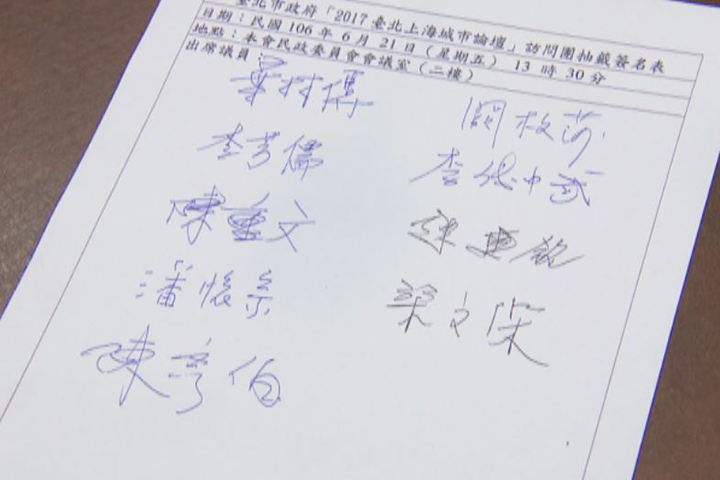 臺北市政府「2017臺北上海城市論壇」訪問團抽籤簽名表
日期：民國 106 年 6 月 21 日（星期五） 13 時 30 分
地點：本會民政委員會會議室（二樓）
出席議員：
葉林傳
闕枚莎
李芳儒
李傅中武
陳重文
潘懷宗
梁文傑
陳彥伯